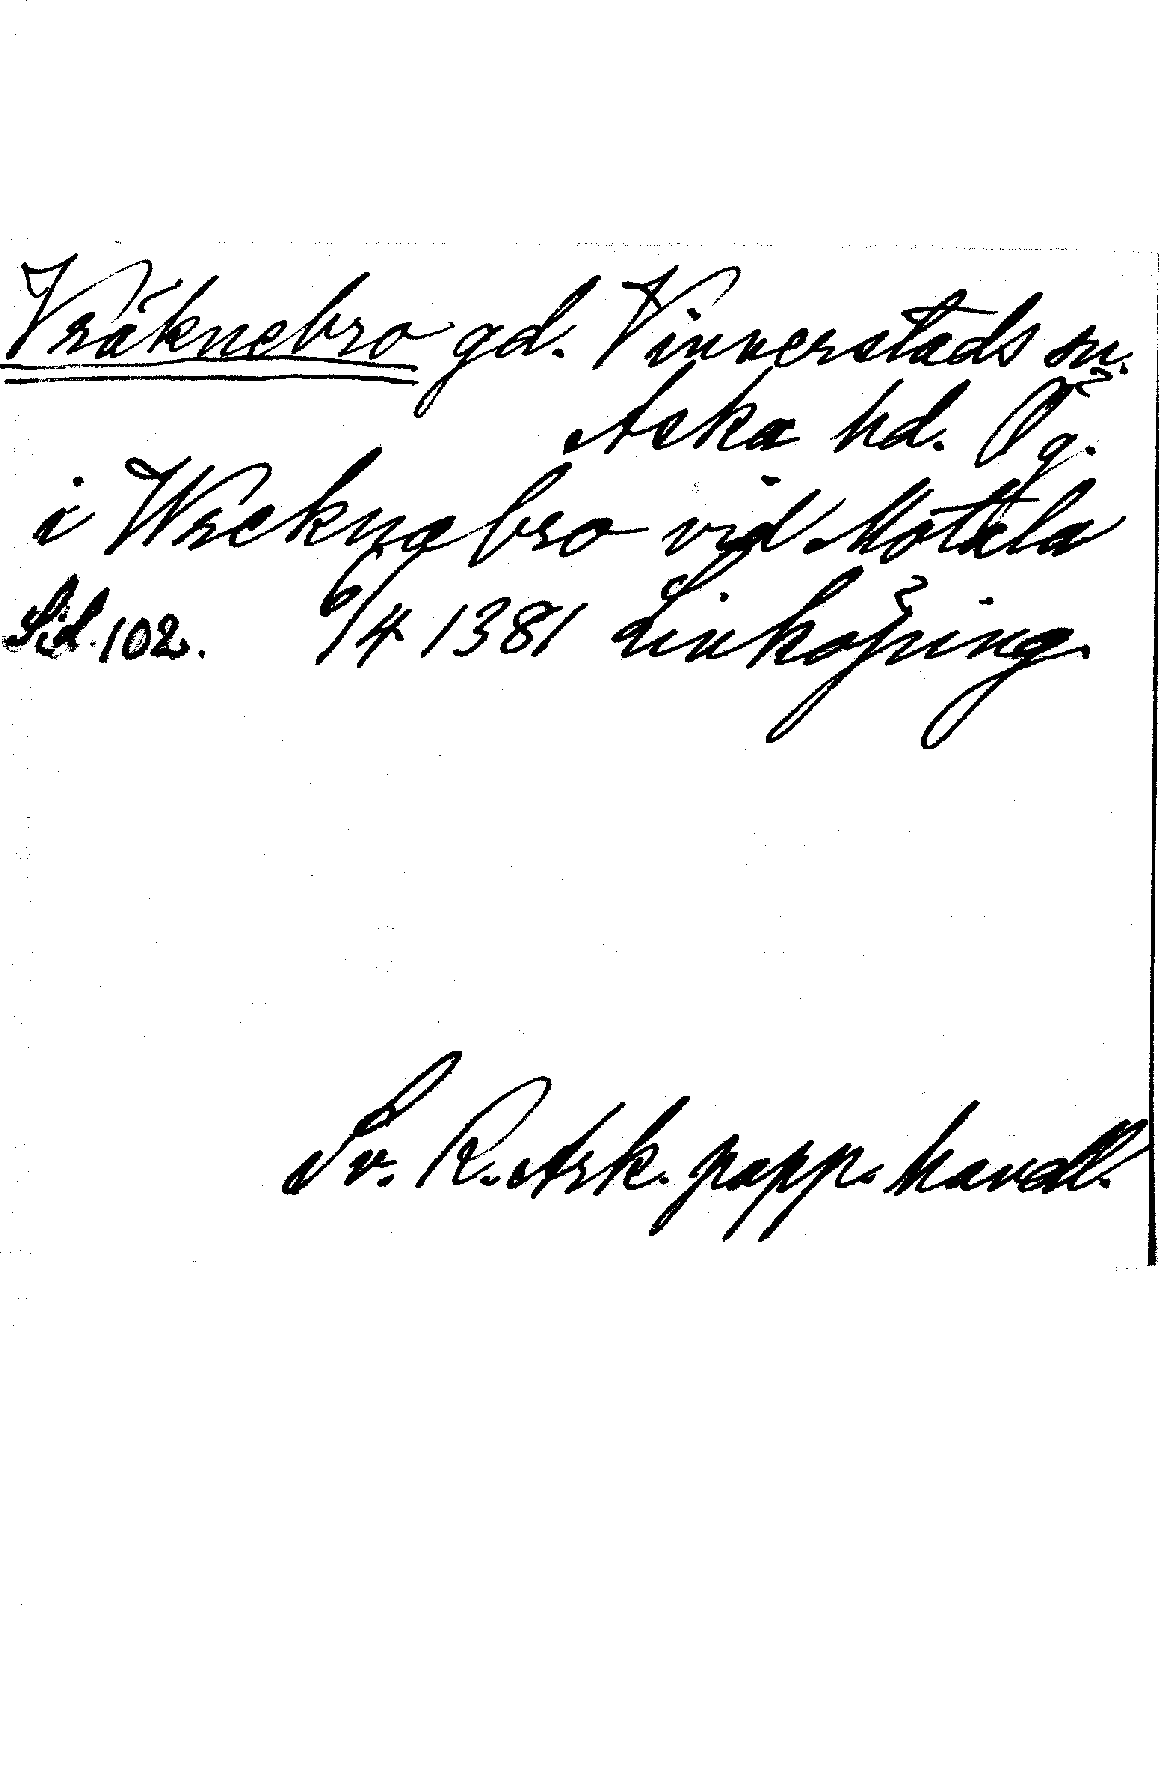 Vräknebro gd. Vinnerstads sn.
Aska hd. Ög.
i Wreknabro vid Motala
Sid. 102. 6/4 1381 Linköping.
Sv. R. Ark. papp. handl.